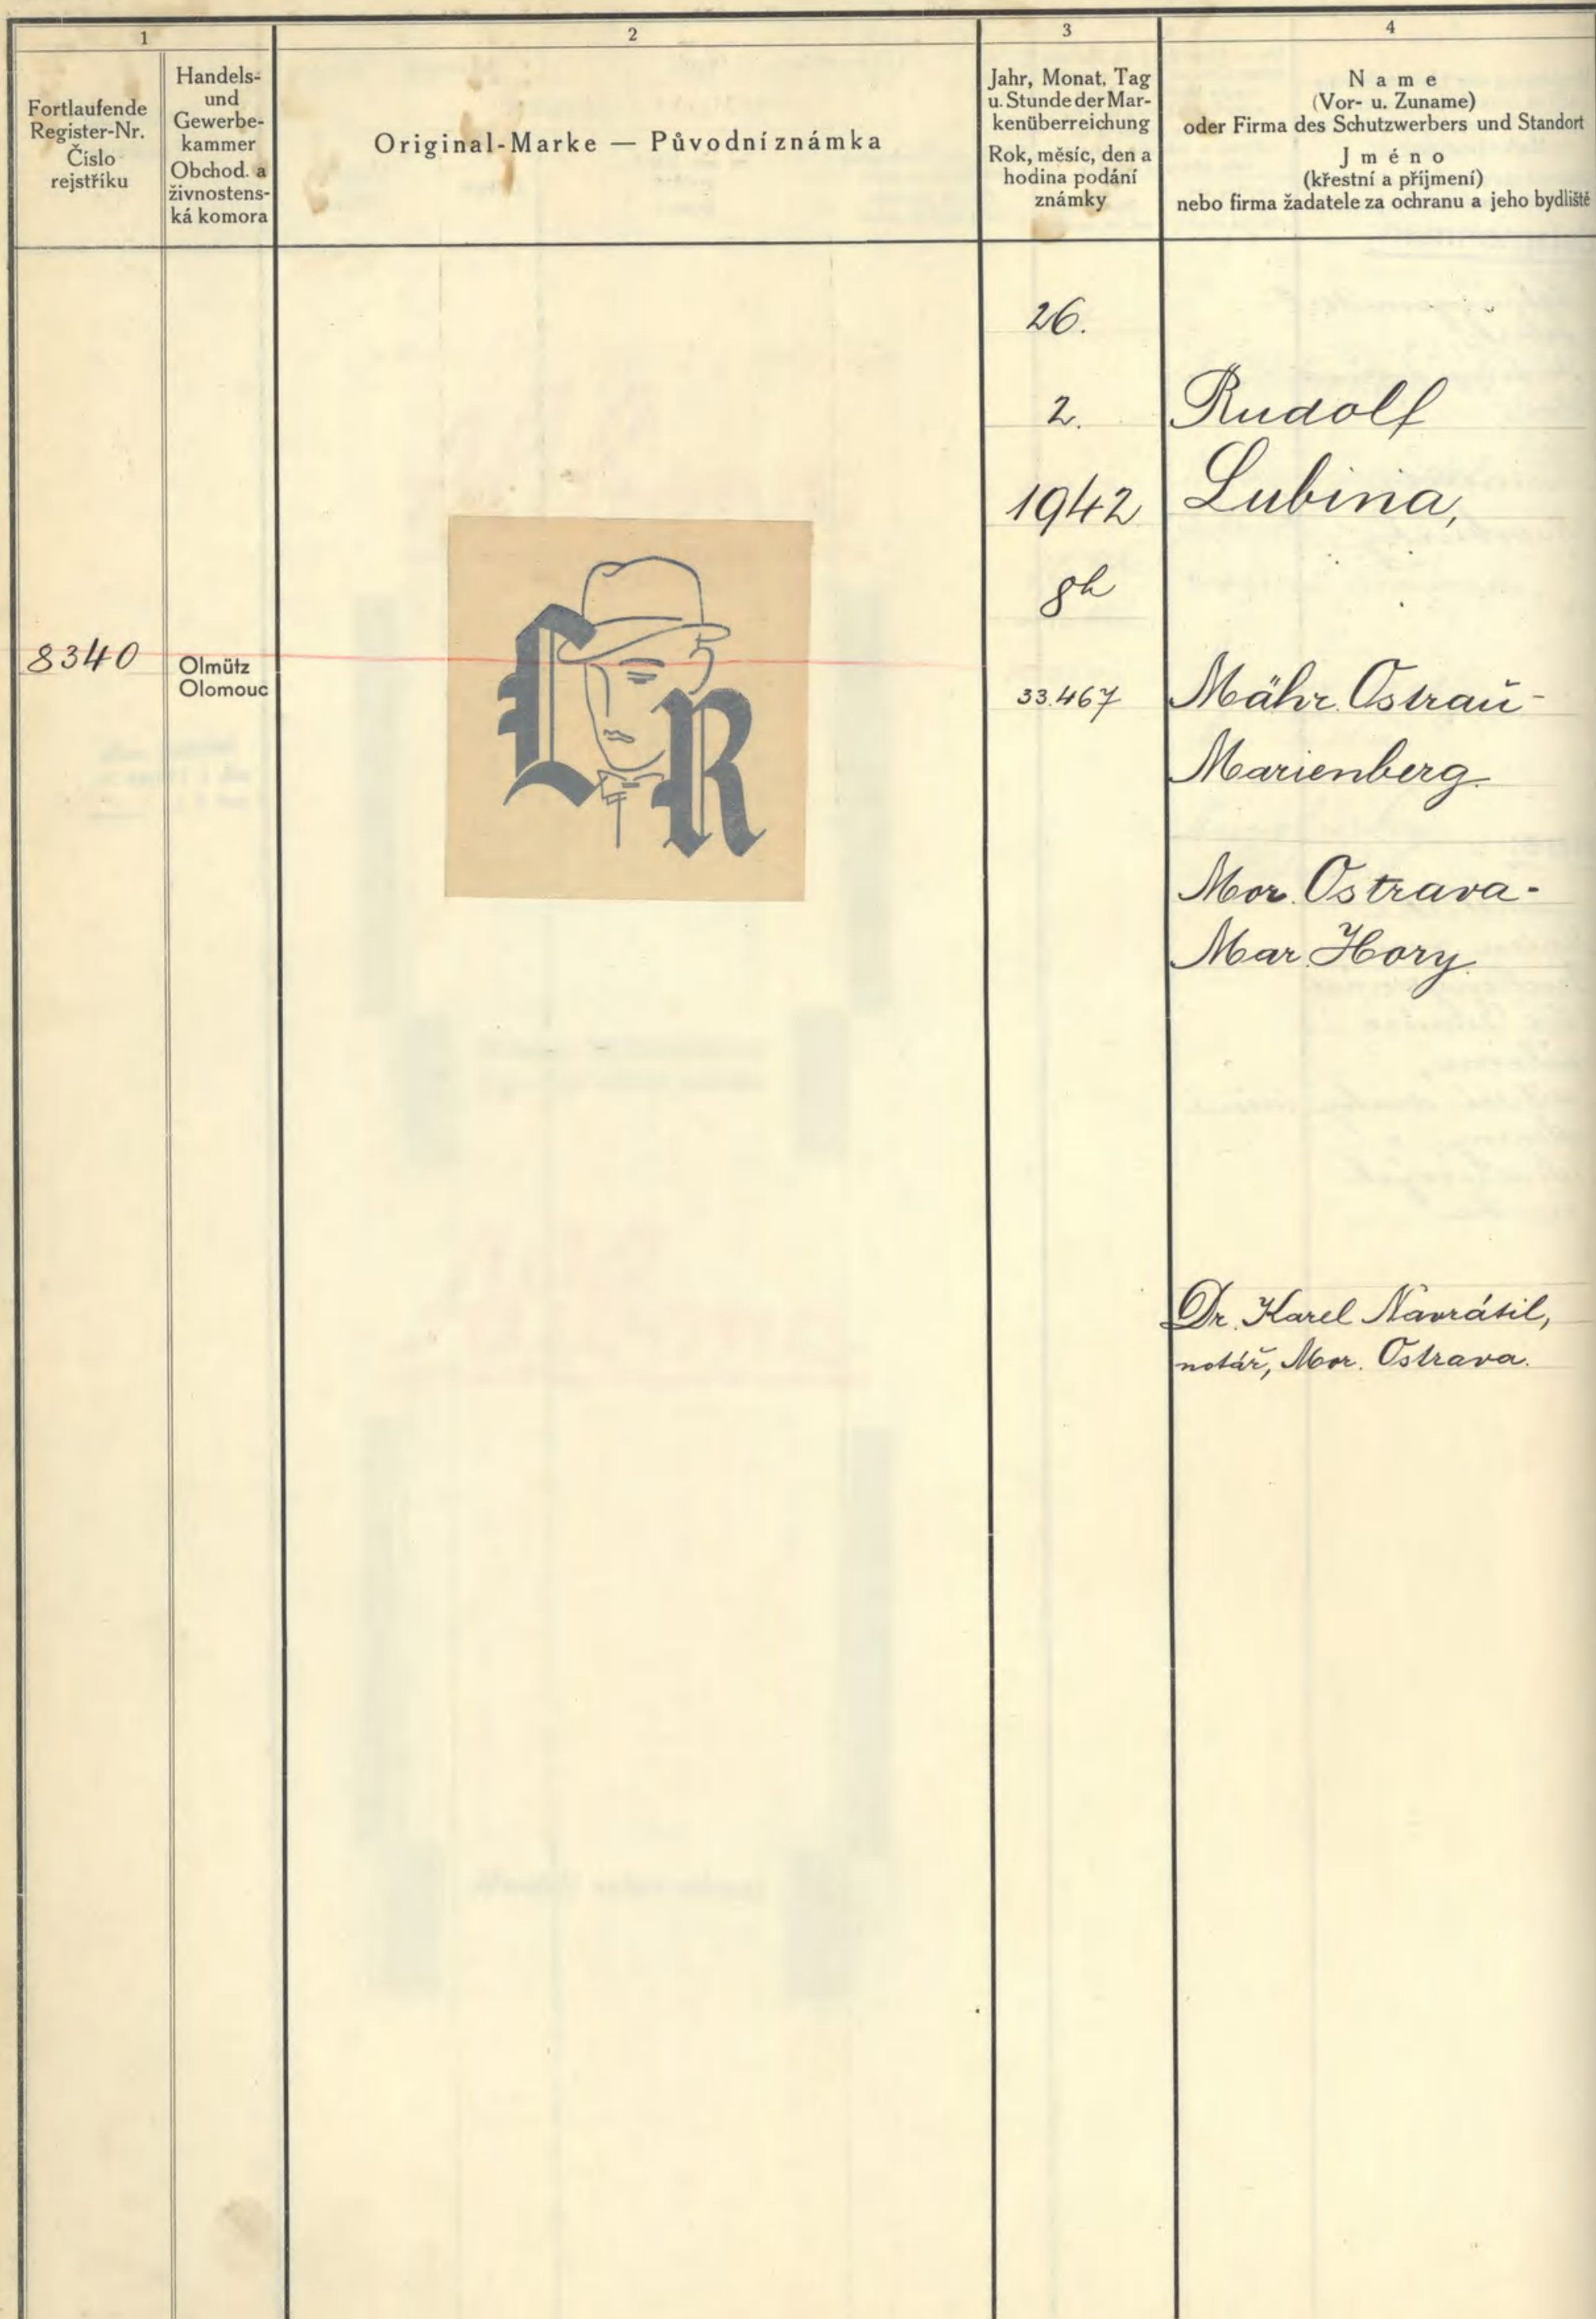 1
2
3
4
Fortlaufende
Register-Nr.
Číslo
rejstříku
Handels-
und
Gewerbe-
kammer
Obchod. a
živnostens-
ká komora
Original-Marke — Původní známka
Jahr, Monat, Tag
u. Stunde der Mar-
kenüberreichung
Rok, měsíc, den a
hodina podání
známky
Name
(Vor- u. Zuname)
oder Firma des Schutzwerbers und Standort
Jméno
(křestní a příjmení)
nebo firma žadatele za ochranu a jeho bydliště
8340
Olmütz
Olomouc
L R
26.
2.
1942
8h
33.467
Rudolf
Lubina,
Mähr. Ostrau-
Marienberg.
Mor. Ostrava-
Mar. Hory.
Dr. Karel Navrátil,
notář, Mor. Ostrava.